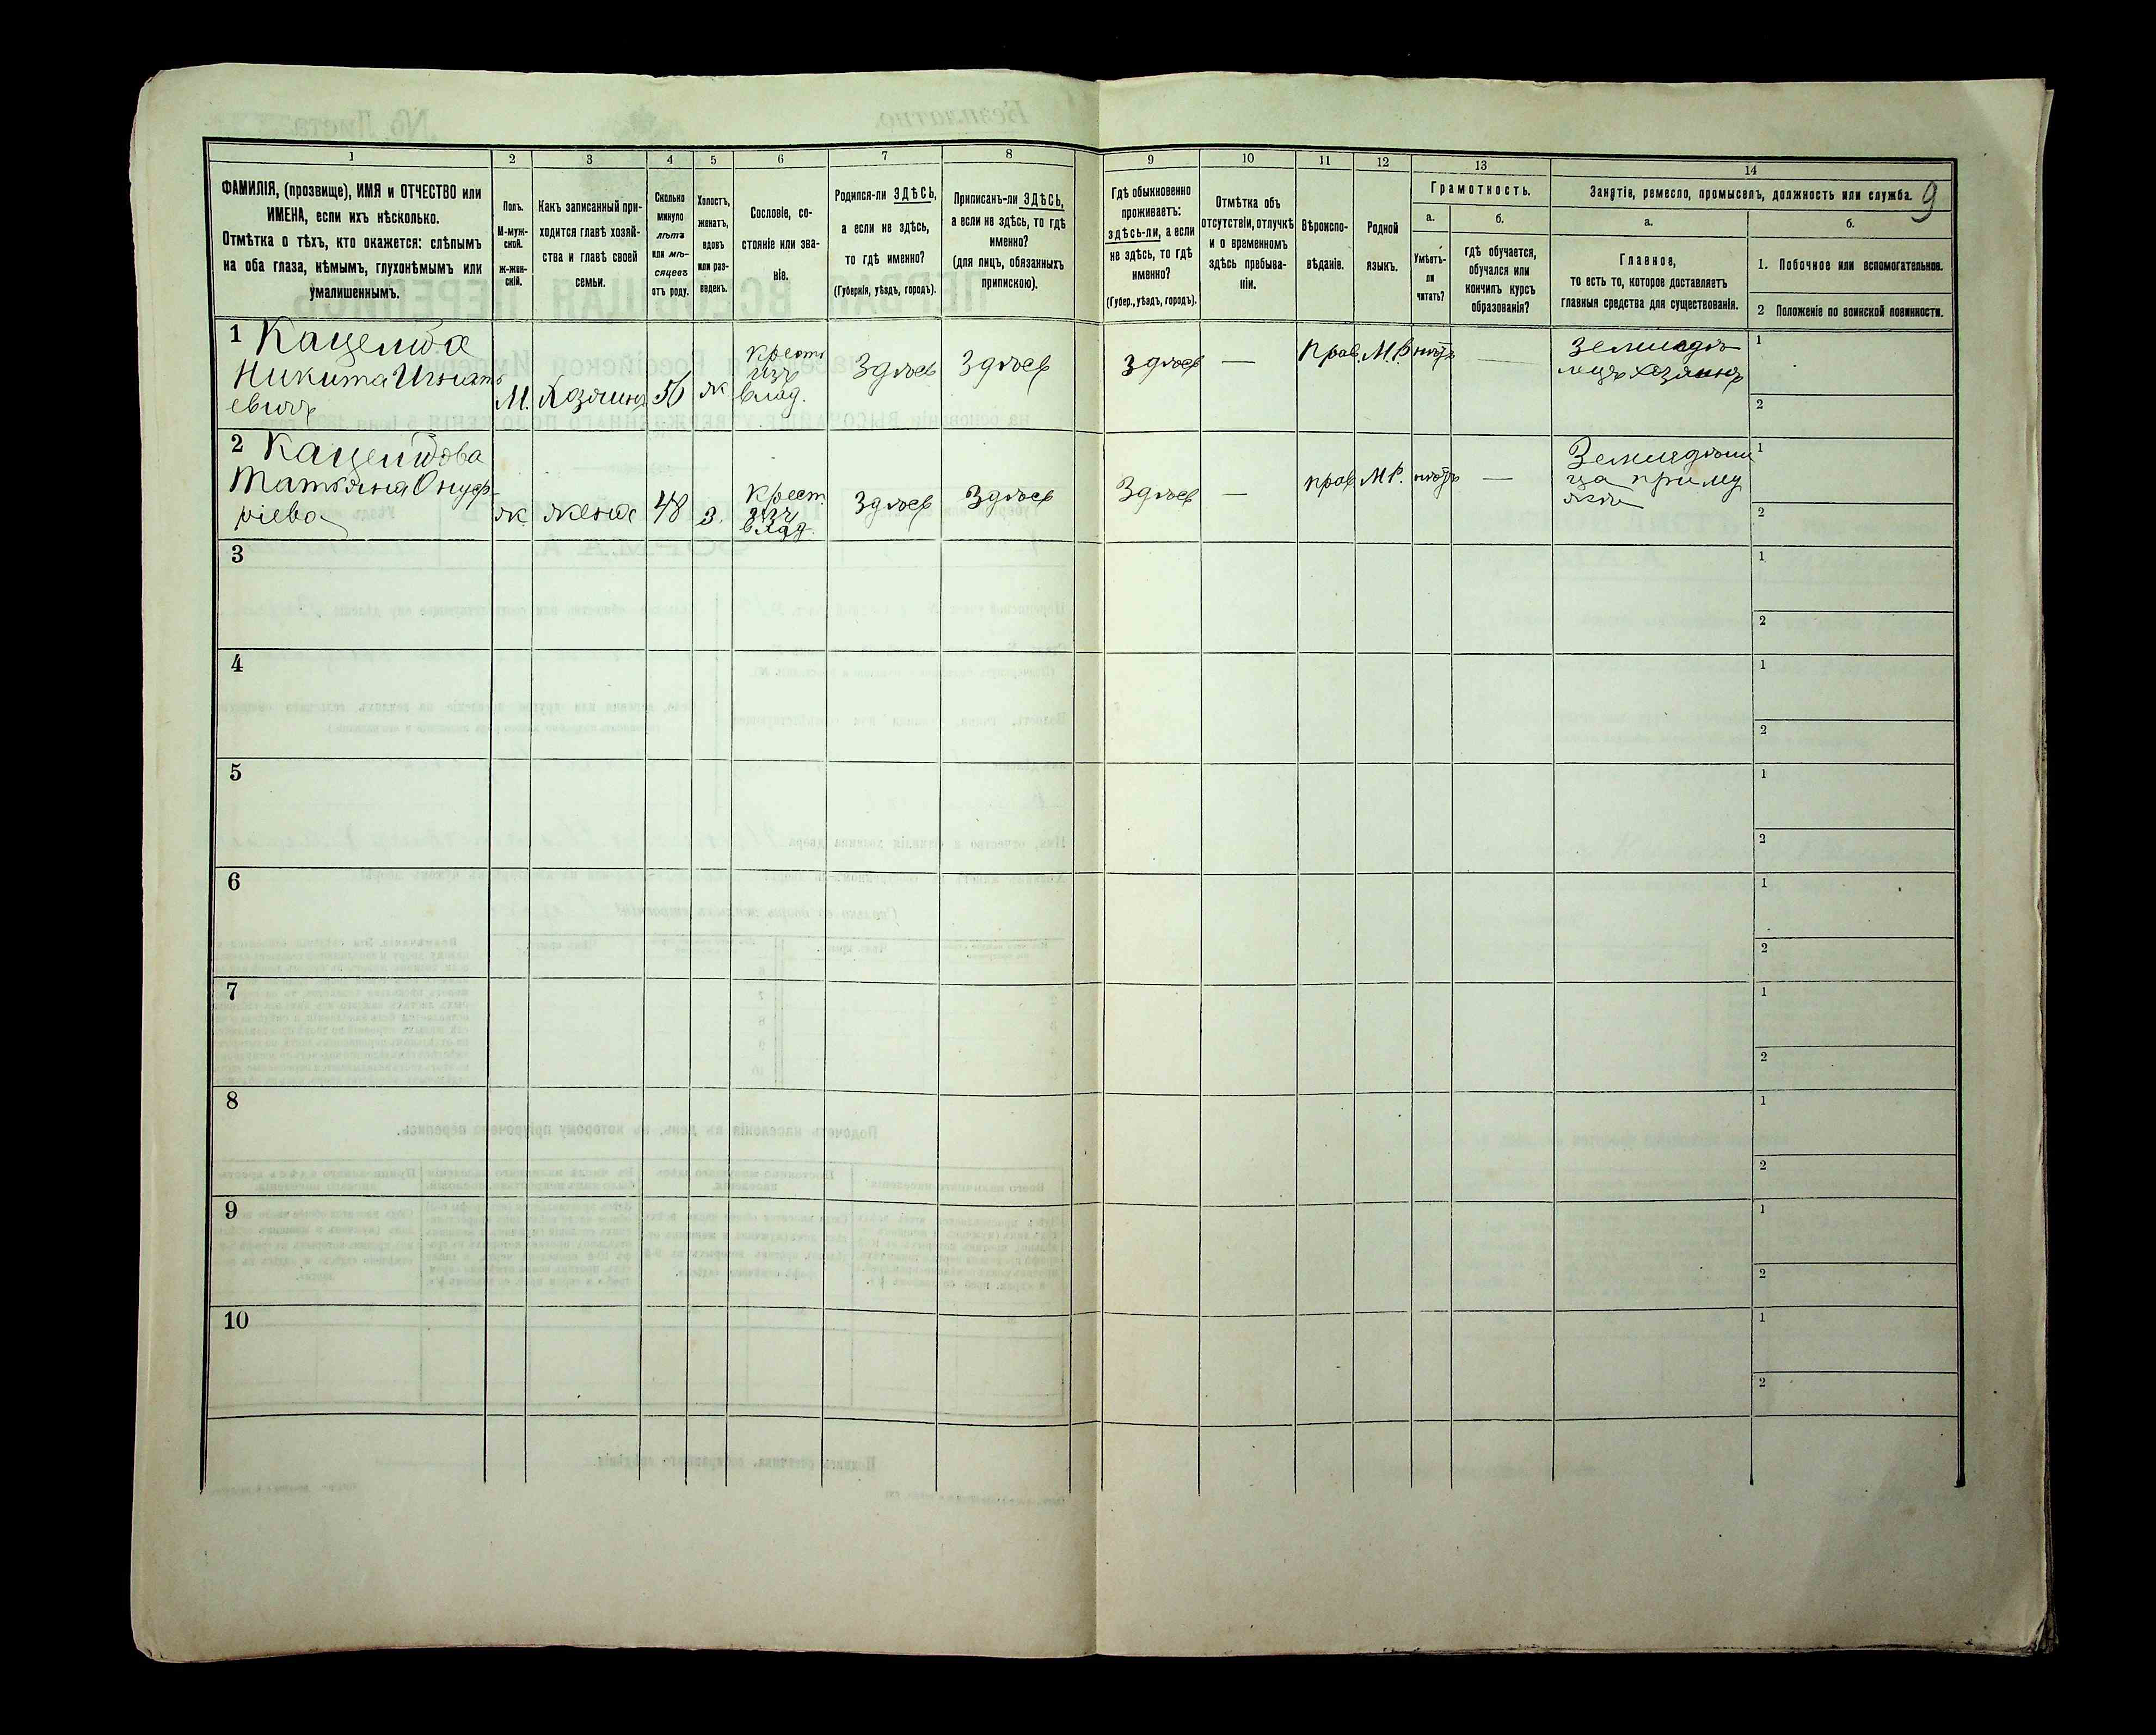 1 2 3 4 5 6 7 8 9 10 11 12 13 14
9
ФАМИЛІЯ, (прозвище), ИМЯ и ОТЧЕСТВО или
ИМЕНА, если ихъ нѣсколько.
Отмѣтка о тѣхъ, кто окажется: слѣпымъ
на оба глаза, нѣмымъ, глухонѣмымъ или
умалишеннымъ.
Полъ.
М-муж-
ской.
Ж-жен-
скій.
Какъ записанный при-
ходится главѣ хозяй-
ства и главѣ своей
семьи.
Сколько
минуло
лѣтъ
или мѣ-
сяцевъ
отъ роду.
Холостъ,
женатъ,
вдовъ
или раз-
веденъ.
Сословіе, со-
стояніе или зва-
ніе.
Родился-ли ЗДѢСЬ,
а если не здѣсь,
то гдѣ именно?
(Губернія, уѣздъ, городъ).
Приписанъ-ли ЗДѢСЬ,
а если не здѣсь, то гдѣ
именно?
(для лицъ, обязанныхъ
припискою).
Гдѣ обыкновенно
проживаетъ:
здѣсь-ли, а если
не здѣсь, то гдѣ
именно?
(Губер., уѣздъ, городъ).
Отмѣтка объ
отсутствіи, отлучкѣ
и о временномъ
здѣсь пребыва-
ніи.
Вѣроиспо-
вѣданіе.
Родной
языкъ.
Грамотность.
а.
Умѣетъ-
ли
читать?
б.
гдѣ обучается,
обучался или
кончилъ курсъ
образованія?
Занятіе, ремесло, промыселъ, должность или служба.
а.
Главное,
то есть то, которое доставляетъ
главныя средства для существованія.
б.
1. Побочное или вспомогательное.
2 Положеніе по воинской повинности.
1
Никита Игнать
евичъ
М. Хозяинъ ж
крест
изъ
влад.
Здѣсь Здѣсь Здѣсь — прав. М.Р. нѣтъ —
земледѣ
лецъ хозяинъ
1
2
2
Татьяна Онуф-
ріева
ж. жена 48 з.
крест
изъ
влад.
Здѣсь Здѣсь Здѣсь — прав. М.Р. нѣтъ —
Земледѣли
ца при му
жѣ
1
2
3
1
2
4
1
2
5
1
2
6
1
2
7
1
2
8
1
2
9
1
2
10
1
2